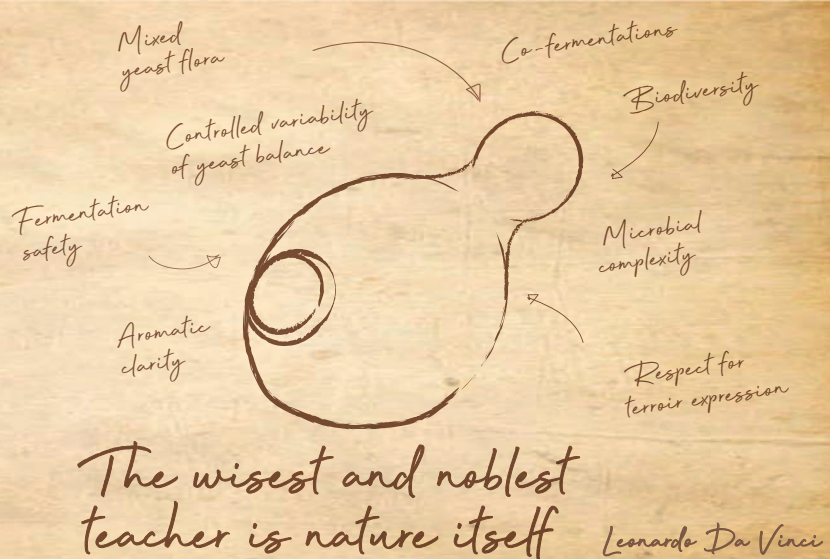 Mixed
yeast flora
Co-fermentations
Biodiversity
Controlled variability
of yeast balance
Fermentation
safety
Microbial
complexity
Aromatic
clarity
Respect for
terroir expression
The wisest and noblest
teacher is nature itself
Leonardo Da Vinci